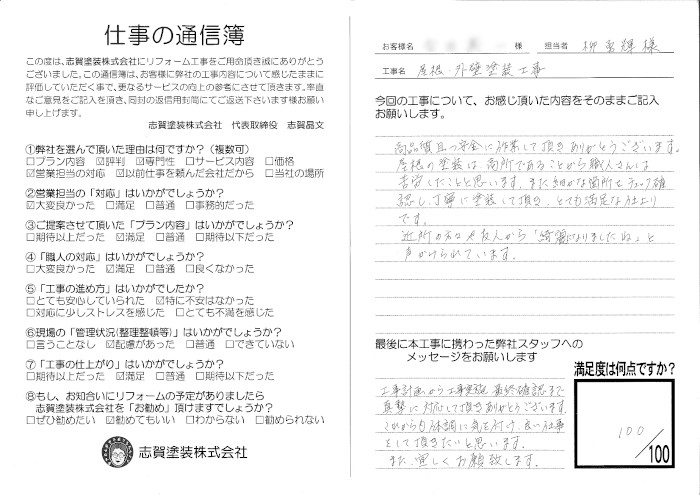 仕事の通信簿
この度は、志賀塗装株式会社にリフォーム工事をご用命頂き誠にありがとう
ございました。この通信簿は、お客様に弊社の工事内容について感じたままに
評価していただく事で、更なるサービスの向上の参考にさせて頂きます。率直
なご意見をご記入を頂き、同封の返信用封筒にてご返送下さいます様お願い
申し上げます。
志賀塗装株式会社 代表取締役 志賀晶文
①弊社を選んで頂いた理由は何ですか?(複数可)
□プラン内容 ☑評判 ☑専門性 □サービス内容 □価格
☑営業担当の対応 ☑以前仕事を頼んだ会社だから □当社の場所
②営業担当の「対応」はいかがでしょうか?
☑大変良かった □満足 □普通 □事務的だった
③ご提案させて頂いた「プラン内容」はいかがでしょうか?
□期待以上だった ☑満足 □普通 □期待以下だった
④「職人の対応」はいかがでしたか?
□大変良かった ☑満足 □普通 □良くなかった
⑤「工事の進め方」はいかがでしたか?
□とても安心していられた ☑特に不安はなかった
□対応に少しストレスを感じた □とても不満を感じた
⑥現場の「管理状況(整理整頓等)」はいかがでしょうか?
□言うことなし ☑配慮があった □普通 □できていない
⑦「工事の仕上がり」はいかがでしょうか?
□期待以上だった ☑満足 □普通 □期待以下だった
⑧もし、お知合いにリフォームの予定がありましたら
志賀塗装株式会社を「お勧め」頂けますでしょうか?
□ぜひ勧めたい ☑勧めてもいい □わからない □勧められない
志賀塗装株式会社
お客様名 様 担当者 様
工事名 屋根・外壁塗装工事
今回の工事について、お感じ頂いた内容をそのままご記入
お願いします。
高品質且つ安全に作業して頂きありがとうございます。
屋根の塗装は、高所であることから職人さんは
苦労したことと思います。また細かな箇所もチェック確
認し、丁寧に塗装して頂き、とても満足な仕上り
です。
近所の方々や友人から「綺麗になりましたね」と
声かけられています。
最後に本工事に携わった弊社スタッフへの
メッセージをお願いします
工事計画から工事実施、最終確認まで
真摯に対応して頂きありがとうございます。
これからも体調に気を付け、良い仕事
をして頂きたいと思います。
また、宜しくお願致します。
満足度は何点ですか?
100
/100